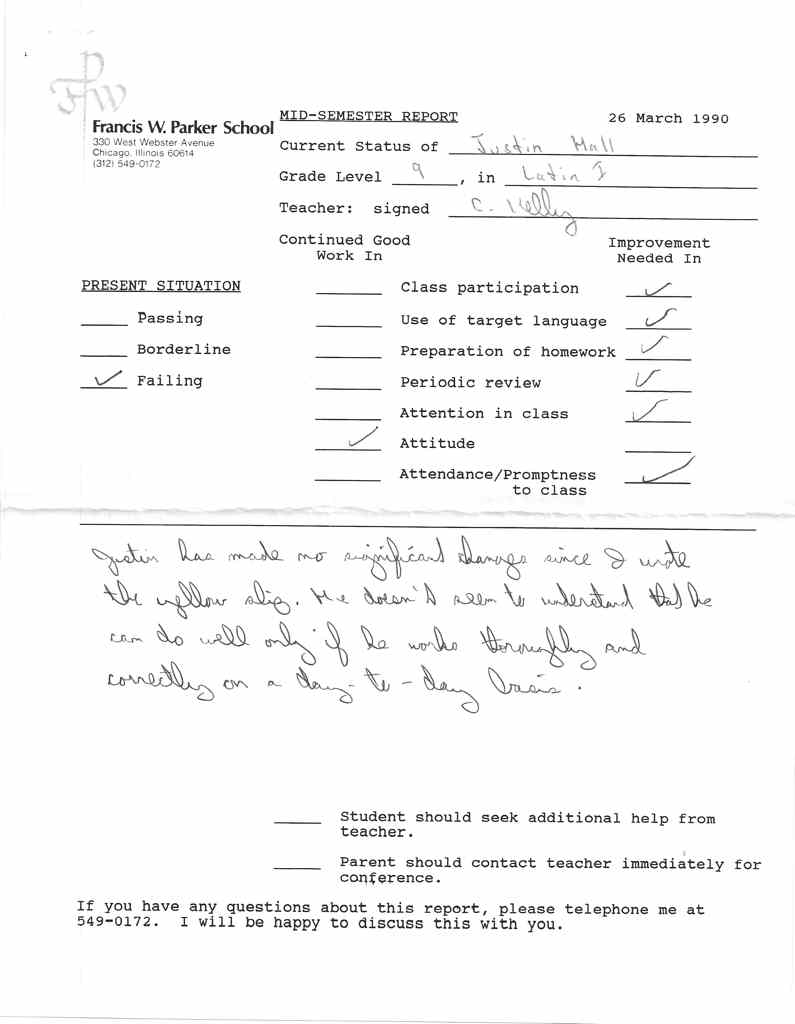 PFW
MID-SEMESTER REPORT 26 March 1990
Francis W. Parker School
330 West Webster Avenue
Chicago, Illinois 60614
(312) 549-0172
Current Status of Justin Hall
Grade Level 9, in Latin I
Teacher: signed C. Kelley
Continued Good Work In
Improvement Needed In
PRESENT SITUATION
Class participation ✓
Passing
Use of target language ✓
Borderline
Preparation of homework ✓
✓ Failing
Periodic review ✓
Attention in class ✓
✓ Attitude
Attendance/Promptness ✓
to class
Justin has made no significant change since I wrote
the yellow slip. He doesn't seem to understand that he
can do well only if he works thoroughly and
correctly on a day-to-day basis.
Student should seek additional help from
teacher.
Parent should contact teacher immediately for
conference.
If you have any questions about this report, please telephone me at
549-0172. I will be happy to discuss this with you.